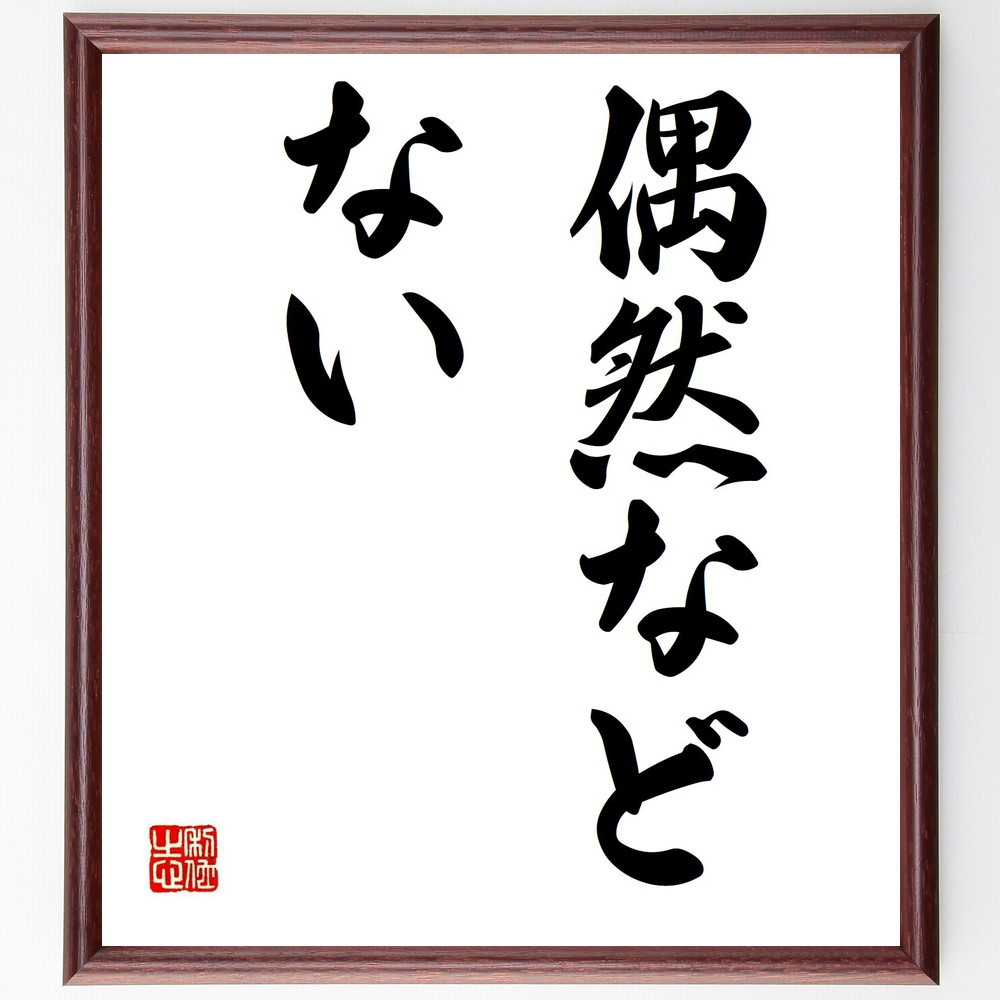 偶然など
ない